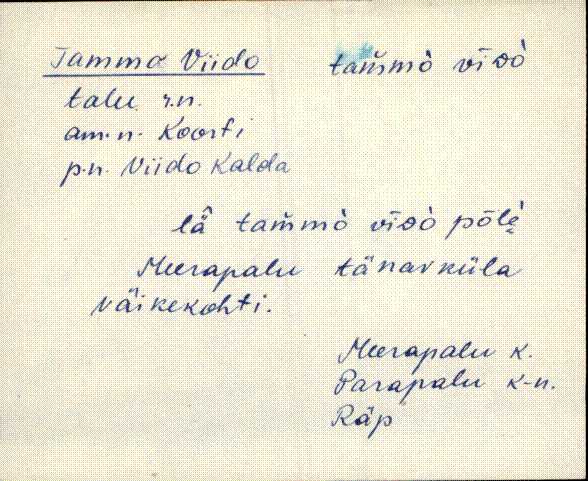 Tammo Viido tam̆mò vīᴅò
talu r.n.
am.n. Koorti
p.n. Viido Kalda
lǟ tam̆mò vīᴅò pōlè̬
Meerapalu tänavküla
väikekohti.
Meerapalu k.
Parapalu k-n.
Räp